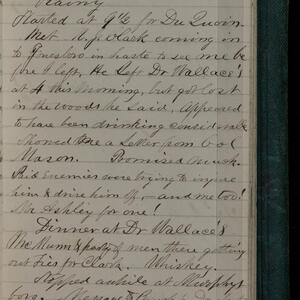 Rainy
Started at 9½ for Du Quoin.
Met N. J. Clark coming in
to Jonesboro in haste to see me be
fore I left, He left Dr Wallace's
at 4 this morning, but got lost
in the woods he said, Appeared
to have been drinking considerable
Showed me a letter from Col
Mason. Promised much.
Said enemies were trying to injure
him & drive him off, — and me too!
Mr Ashley for one!
Dinner at Dr Wallace's
McMunn & party of men there getting
out Ties for Clark. Whiskey.
Stopped awhile at Murphys
boro.